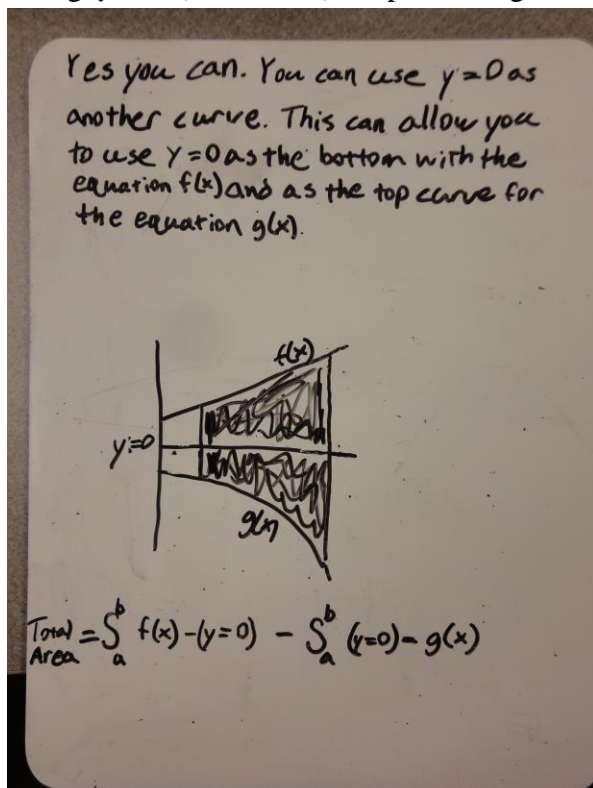 Yes you can. You can use y=0 as
another curve. This can allow you
to use y=0 as the bottom with the
equation f(x) and as the top curve for
the equation g(x).
f(x)
y=0
g(x)
Total Area = ∫ₐᵇ f(x)-(y=0) - ∫ₐᵇ (y=0)-g(x)